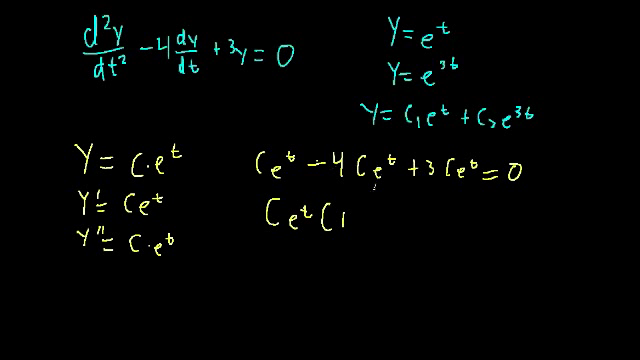 d²y/dt² - 4 dy/dt + 3y = 0
y = e^t
y = e^3t
y = C₁e^t + C₂e^3t
y = C·e^t
y' = Ce^t
y'' = C·e^t
Ce^t - 4Ce^t + 3Ce^t = 0
Ce^t (1